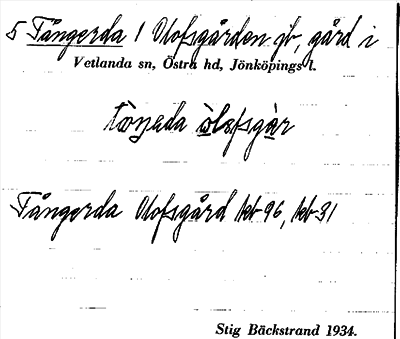 5 Tångerda 1 Olofsgården jb, gård i
Vetlanda sn, Östra hd, Jönköpings l.
Tångerda Olofsgård kb 96, kb 31
Stig Bäckstrand 1934.